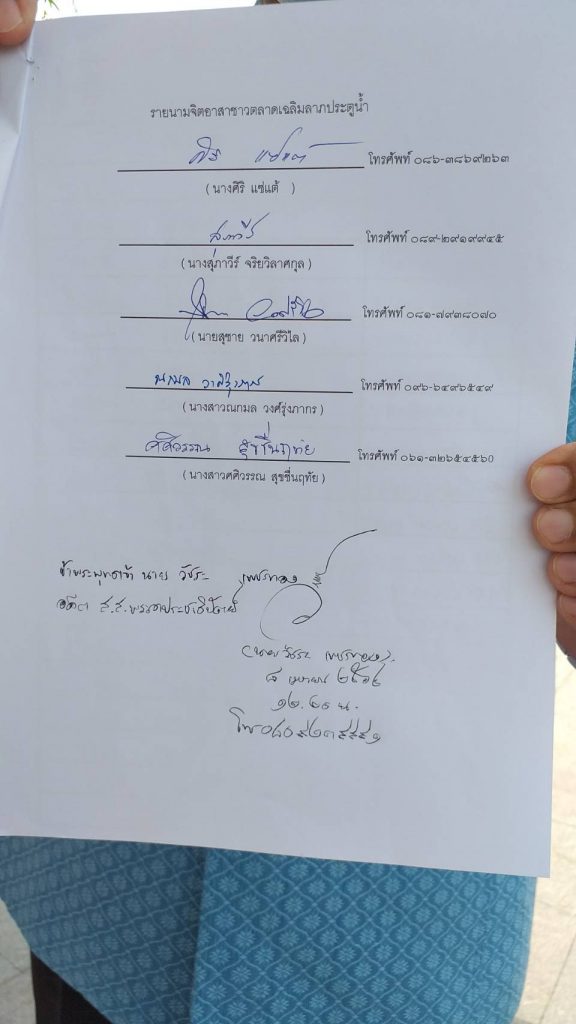 รายนามจิตอาสาชาวตลาดเฉลิมลาภประตูน้ำ
ศิริ แซ่แต้ โทรศัพท์ ๐๘๖-๓๘๖๙๒๖๓
(นางศิริ แซ่แต้ )
สุภาวีร์ โทรศัพท์ ๐๘๙-๒๙๑๙๙๔๕
(นางสุภาวีร์ จริยวิลาศกุล)
โทรศัพท์ ๐๘๑-๗๙๓๘๐๗๐
(นายสุชาย วนาศรีวิไล)
โทรศัพท์ ๐๙๖-๖๔๙๖๕๔๙
(นางสาวณกมล วงศ์รุ่งภากร)
ศศิวรรณ สุขชื่นฤทัย โทรศัพท์ ๐๖๑-๓๒๖๕๔๕๖๐
(นางสาวศศิวรรณ สุขชื่นฤทัย)
ข้าพระพุทธเจ้า นาย วัชระ เพชรทอง
อดีต ส.ส.พรรคประชาธิปัตย์
(นายวัชระ เพชรทอง).
๘ เมษายน ๒๕๖๔